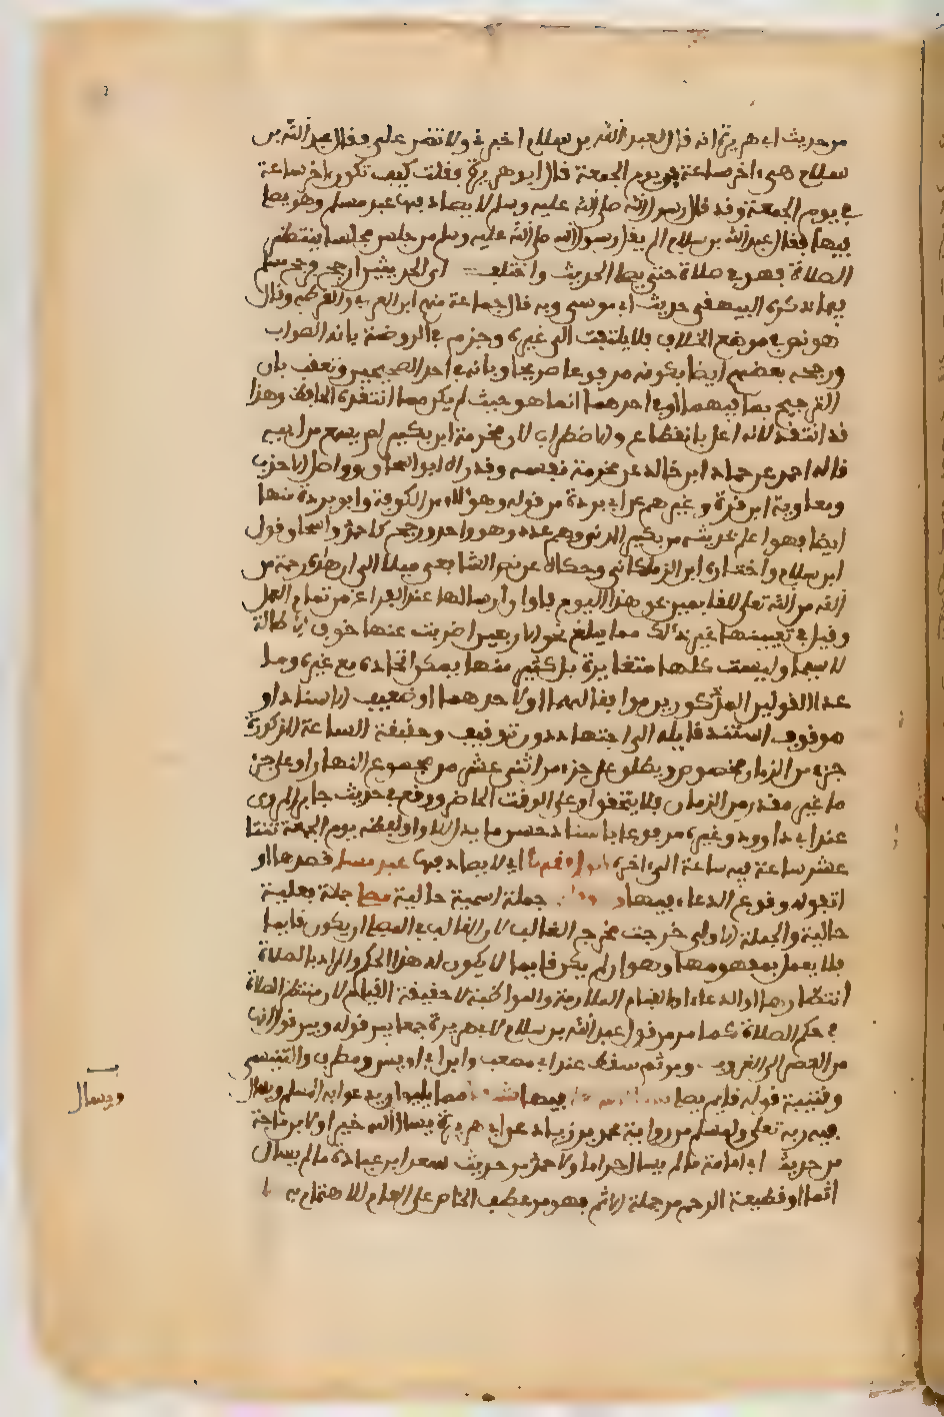 من حديث ابي هريرة انه قال لعبد الله بن سلام اخبرني ولا تضن علي فقال عبد الله بن
سلام هي اخر ساعة في يوم الجمعة قال ابو هريرة فقلت كيف تكون اخر ساعة
في يوم الجمعة وقد قال رسول الله صلى الله عليه وسلم لا يصادفها عبد مسلم وهو يصلي
فيها فقال عبد الله بن سلام الم يقل رسول الله صلى الله عليه وسلم من جلس مجلسا ينتظر
الصلاة فهو في صلاة حتى يصلي الحديث واختلف اي الحديثين ارجح فرجح مسلم
فيما ذكره البيهقي حديث ابي موسى وبه قال جماعة منهم ابن العربي والقرطبي وقال
هو نص في موضع الخلاف فلا يلتفت الى غيره وجزم في الروضة بانه الصواب
ورجحه بعضهم ايضا بكونه مرفوعا صريحا وبانه في احد الصحيحين وتعقب بان
الترجيح بما فيهما او في احدهما انما هو حيث لم يكن مما انتقده الحافظ وهذا
قد انتقد لانه اعل بانقطاع والاضطراب لان مخرمة ابن بكير لم يسمع من ابيه
قاله احمد عن حماد ابن خالد عن مخرمة نفسه وقد رواه ابو اسحاق وواصل الاحدب
ومعاوية ابن قرة وغيرهم عن ابي بردة من قوله وهؤلاء من الكوفة وابو بردة منها
ايضا فهو اعلم بحديثه من بكير المدني وهم عدد وهو واحد ورجح كاحمد واسحاق قول
ابن سلام واختاره ابن الزملكاني وحكاه عن نص الشافعي ميلا الى ان هذه رحمة من
الله تعلى للقايمين بحق هذا اليوم فاوان ارسالها عند الفراغ من تمام العمل
وقيل في تعيينها غير ذلك مما يبلغ نحو الاربعين اضربت عنها خوف الاطالة
لا سيما وليست كلها متغايرة بل كثير منها يمكن اتحاده مع غيره وما
عدا القولين المذكورين موافق لهما او لاحدهما او ضعيف الاسناد او
موقوف استند قايله الى اجتهاد دون توقيف وحقيقة الساعة المذكورة
جزء من الزمان مخصوص ويطلق على جزء من اثني عشر من مجموع النهار او على جزء
ما غير مقدر من الزمان فلا يتحقق او على الوقت الحاضر ووقع في حديث جابر المروي
عند ابي داوود وغيره مرفوعا باسناد حسن ما يدل للاول ولفظه يوم الجمعة ثنتا
عشر ساعة فيه ساعة الى اخره لا يوافقها اي لا يصادفها عبد مسلم قصدها او
اتفق له وقوع الدعاء فيها جملة اسمية حالية يصلي جملة فعلية
حالية والجملة الاولى خرجت مخرج الغالب لان الغالب في المصلي ان يكون قايما
فلا يعمل بمفهومها وهو ان لم يكن قايما لا يكون له هذا الحكم والمراد بالصلاة
انتظارها او الدعاء وبالقيام الملازمة والمواظبة لا حقيقة القيام لان منتظر الصلاة
في حكم الصلاة كما مر من قول عبد الله بن سلام لابي هريرة جمعا بين قوله وبين قوله انها
من العصر الى الغروب ومن ثم سقط عند ابي مصعب وابن ابي اويس ومطرف والتنيسي
وقتيبة قوله قايم يصلي فيها شيئا مما يليق ان يدعو به المسلم ويسال
ويسال
فيه ربه تعلى ولمسلم من رواية محمد بن زياد عن ابي هريرة يسال الله خيرا ولابن ماجة
من حديث ابي امامة ما لم يسال حراما ولاحمد من حديث سعد ابن عبادة ما لم يسال
اثما او قطيعة الرحم من جملة الاثم فهو من عطف الخاص على العام للاهتمام به